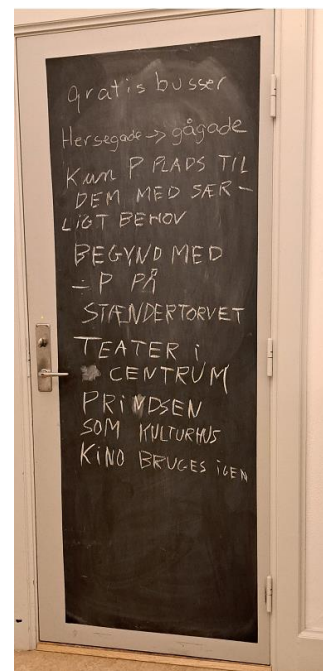 gratis busser
Hersegade -> gågade
Kun P PLADS TIL
DEM MED SÆR-
LIGT BEHOV
BEGYND MED
- P PÅ
STÆNDERTORVET
TEATER i
CENTRUM
PRiNDSEN
SOM KULTURHUS
KiNO BRUGES iGEN